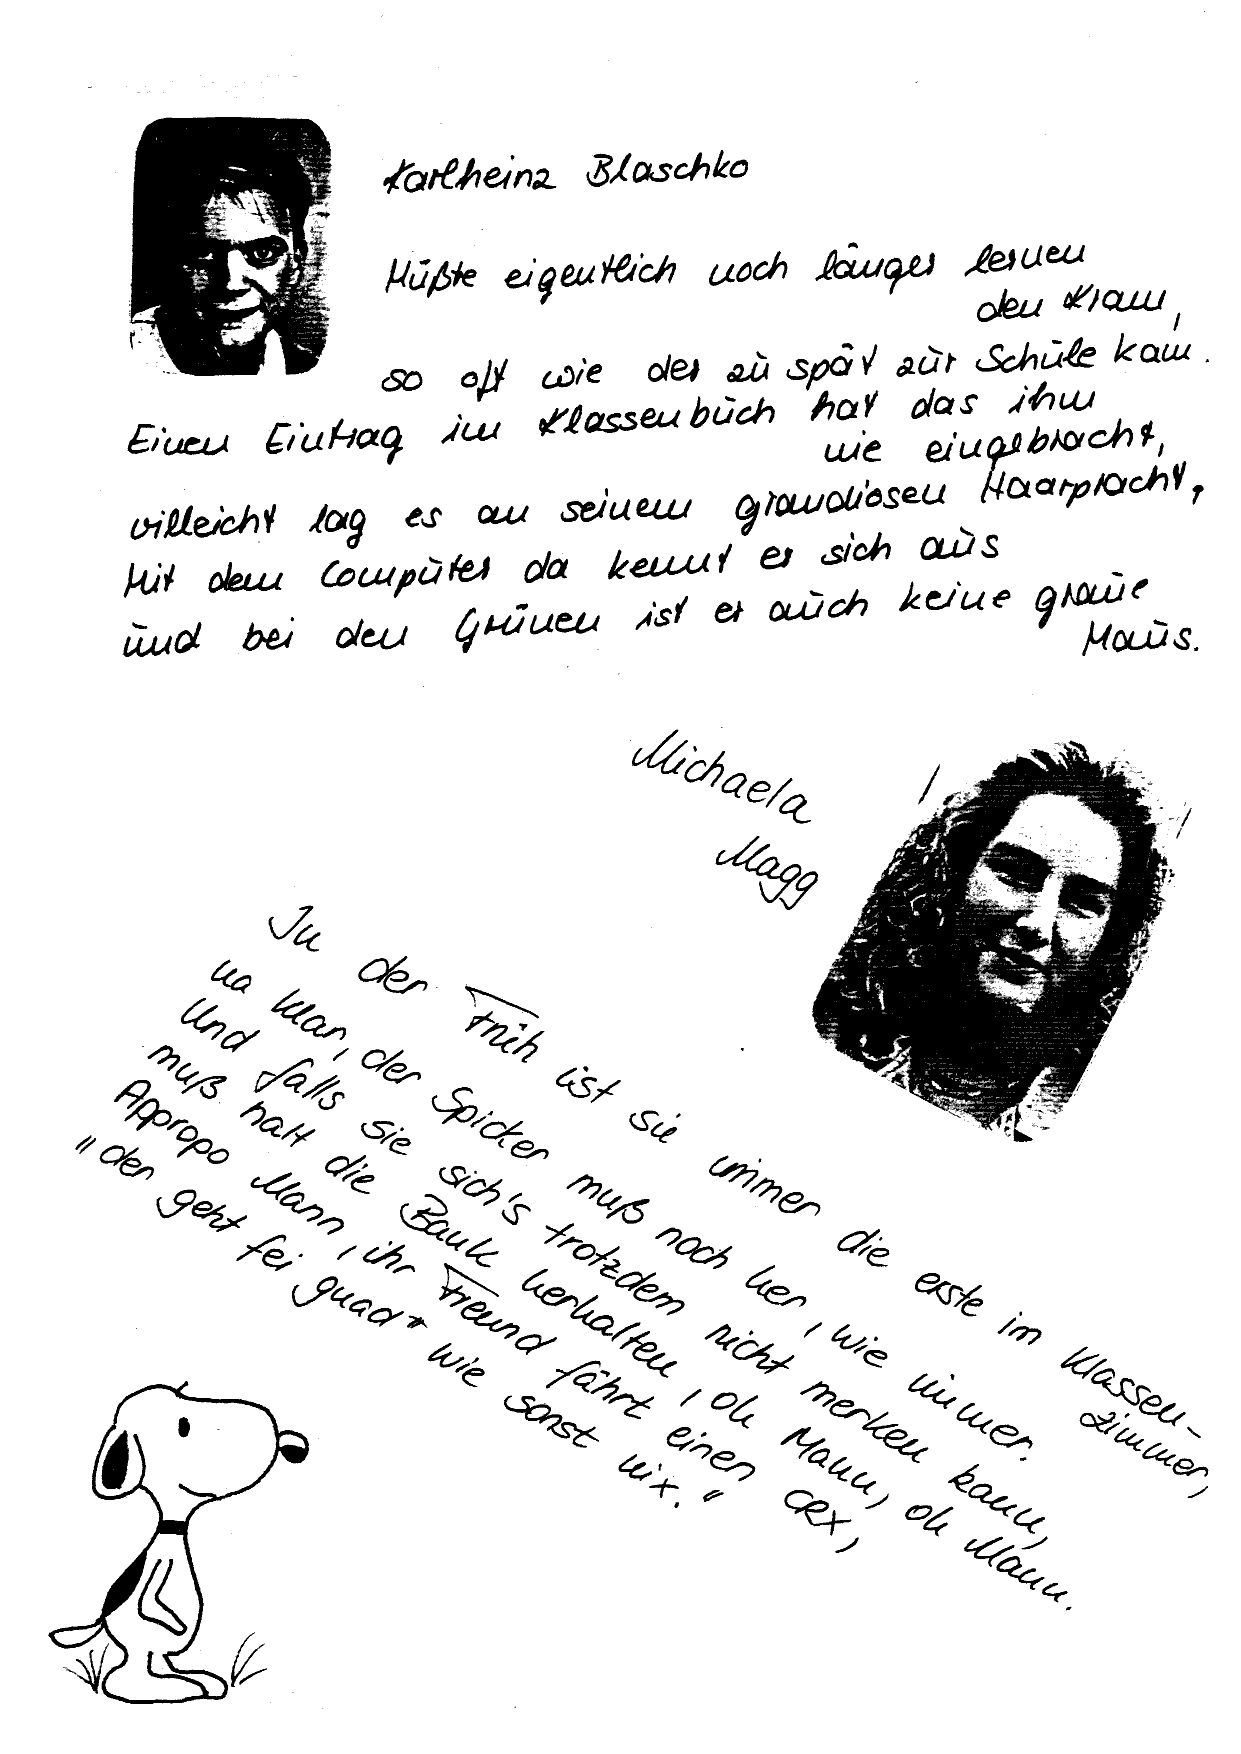 Karlheinz Blaschko
Müßte eigentlich noch länger lernen
den Kram,
so oft wie der zu spät zur Schule kam.
Einen Eintrag im Klassenbuch hat das ihm
nie eingebracht,
villeicht lag es an seinem grandiosen Haarpracht,
Mit dem Computer da kennt er sich aus
und bei den Grünen ist er auch keine graue
Maus.
Michaela
Magg
In der Früh ist sie immer die erste im Klassen-
zimmer,
na klar, der Spicker muß noch her, wie immer.
Und falls sie sich's trotzdem nicht merken kann,
muß halt die Bank herhalten, oh Mann, oh Mann.
Appropo Mann, ihr Freund fährt einen CRX,
"der geht fei guad" wie sonst nix."